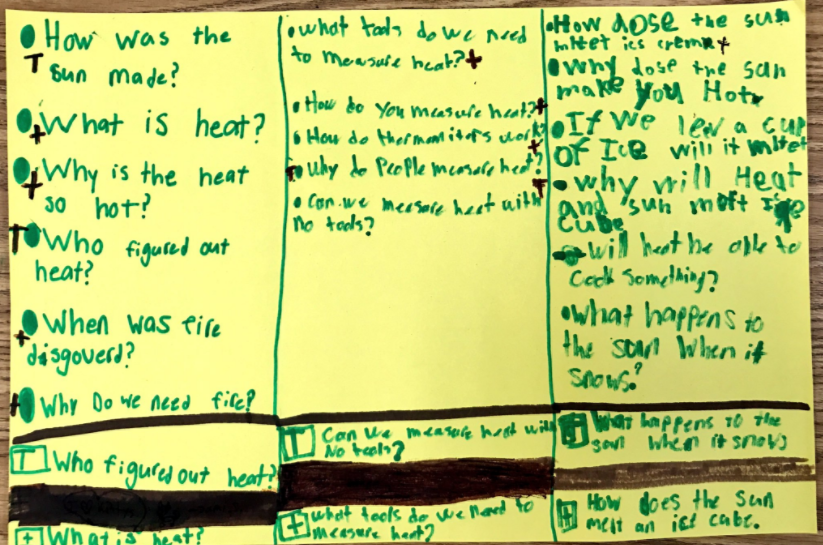 How was the
sun made?
What is heat?
Why is the heat
so hot?
Who figured out
heat?
When was fire
disgoverd?
Why Do we need fire?
T Who figured out heat?
+ What is heat?
what tools do we need
to measure heat?
How do you measure heat?
How do thermoniters work?
why do People measure heat?
Can we measure heat with
No tools?
T Can we measure heat with
No tools?
+ what tools do we need to
measure heat?
How dose the sun
mltet ice crem
why dose the sun
make you Hot
If we lev a cup
of Ice will it mltet
why will Heat
and sun melt Ice
cube
will heat be able to
Cook something?
what happens to
the sun When it
snows?
What happens to the
sun when it snows
How does the Sun
melt an ice cube.